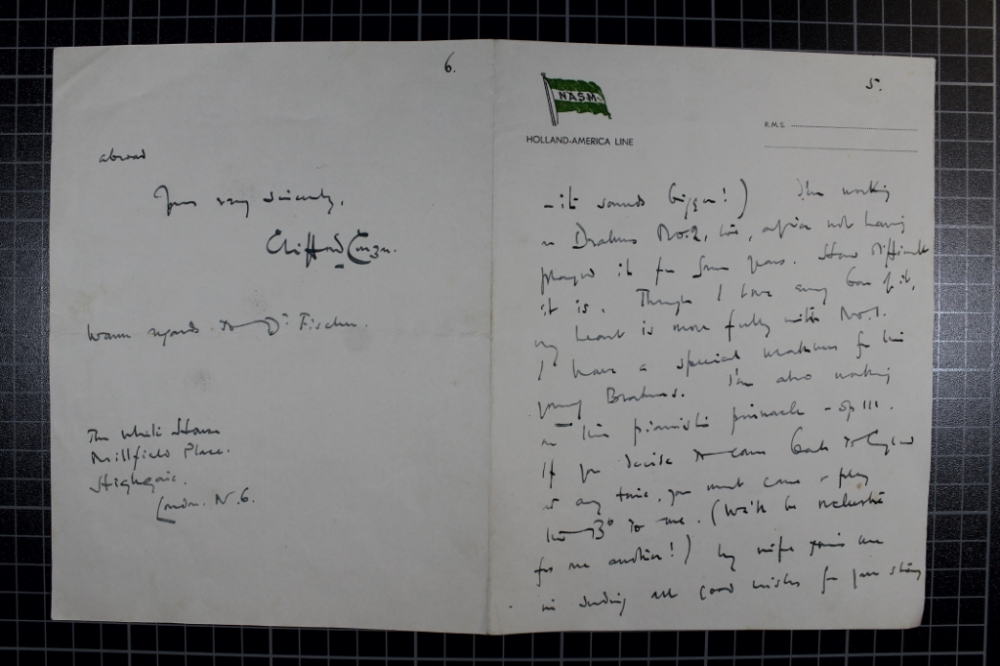 5.
NASM
HOLLAND-AMERICA LINE
R.M.S.
- it sounds bigger!) I'm working
on Brahms No.2, too, after not having
played it for some years. How difficult
it is. Though I love every bar of it,
my heart is more fully with No.1.
I have a special weakness for the
young Brahms. I'm also working
on the pianistic pinnacle - op 111.
If you decide to come back to England
at any time, you must come & play
the to me. (We'll be orchestra
for one another!) My wife joins me
in sending all good wishes for your stay
6.
abroad
Yours very sincerely,
Clifford Curzon.
Warm regards to Dr. Fischer.
The White House
Millfield Place.
Highgate.
London. N.6.